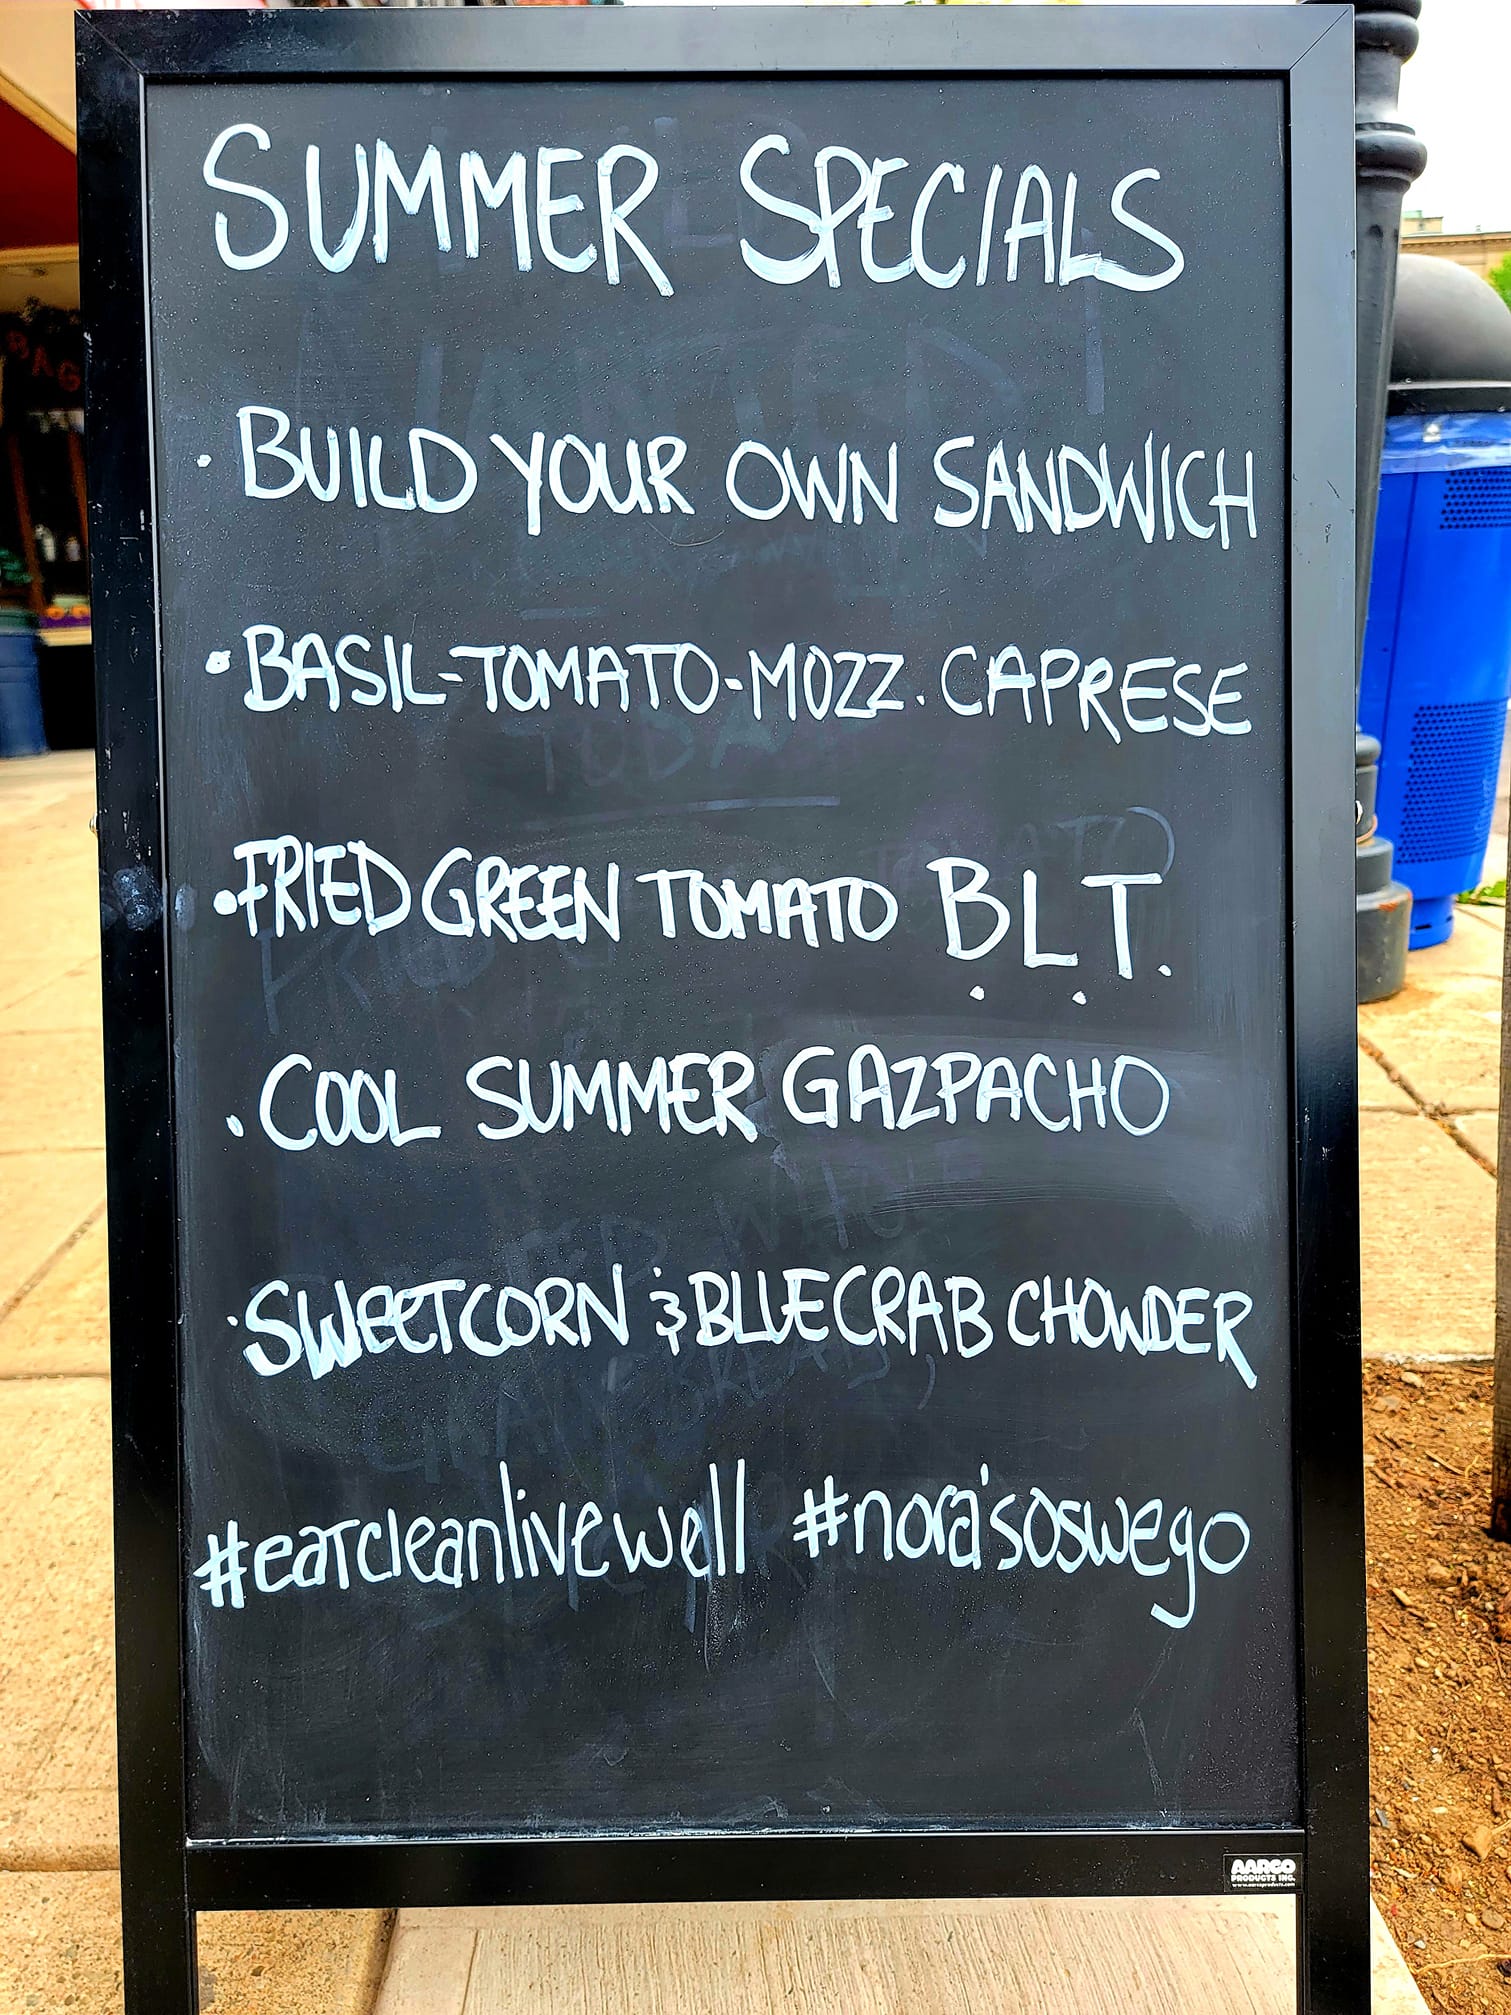 SUMMER SPECIALS
· BUILD YOUR OWN SANDWICH
· BASIL-TOMATO-MOZZ. CAPRESE
· FRIED GREEN TOMATO B.L.T.
· COOL SUMMER GAZPACHO
· SWEETCORN & BLUECRAB CHOWDER
#eatcleanlivewell #nora'soswego
AARCO
PRODUCTS INC.
www.aarcoproducts.com